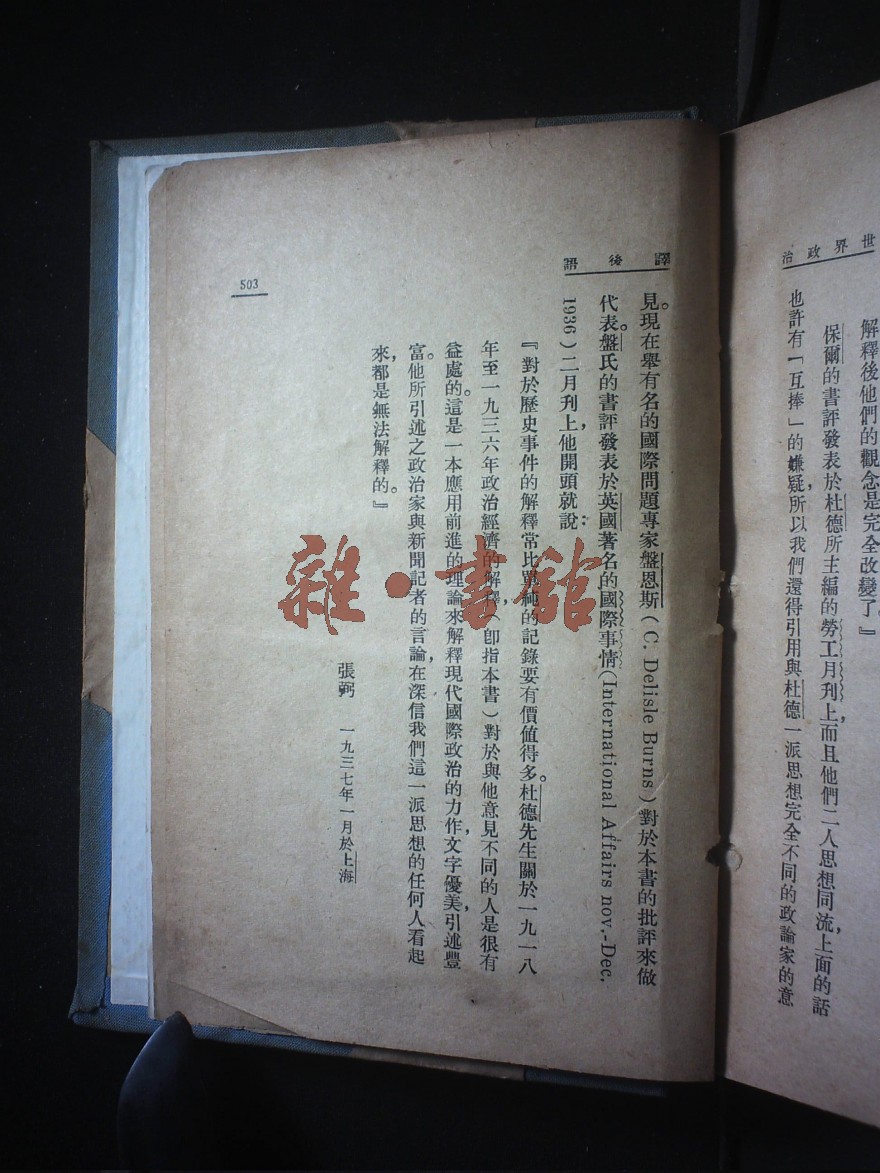 世界政治
解釋後他們的觀念是完全改變了。』
保爾的書評發表於杜德所主編的勞工月刊上，而且他們二人思想同流，上面的話
也許有「互捧」的嫌疑，所以我們還得引用與杜德一派思想完全不同的政論家的意
譯後語
見。現在舉有名的國際問題專家盤恩斯（C. Delisle Burns）對於本書的批評來做
代表。盤氏的書評發表於英國著名的國際事情（International Affairs nov.-Dec.
1936）二月刊上，他開頭就說：
『對於歷史事件的解釋常比單純的記錄要有價值得多。杜德先生關於一九一八
年至一九三六年政治經濟的解釋，（卽指本書）對於與他意見不同的人是很有
益處的。這是一本應用前進的理論來解釋現代國際政治的力作，文字優美，引述豐
富。他所引述之政治家與新聞記者的言論，在深信我們這一派思想的任何人看起
來，都是無法解釋的。』
張弼 一九三七年一月於上海
503
雜·書館